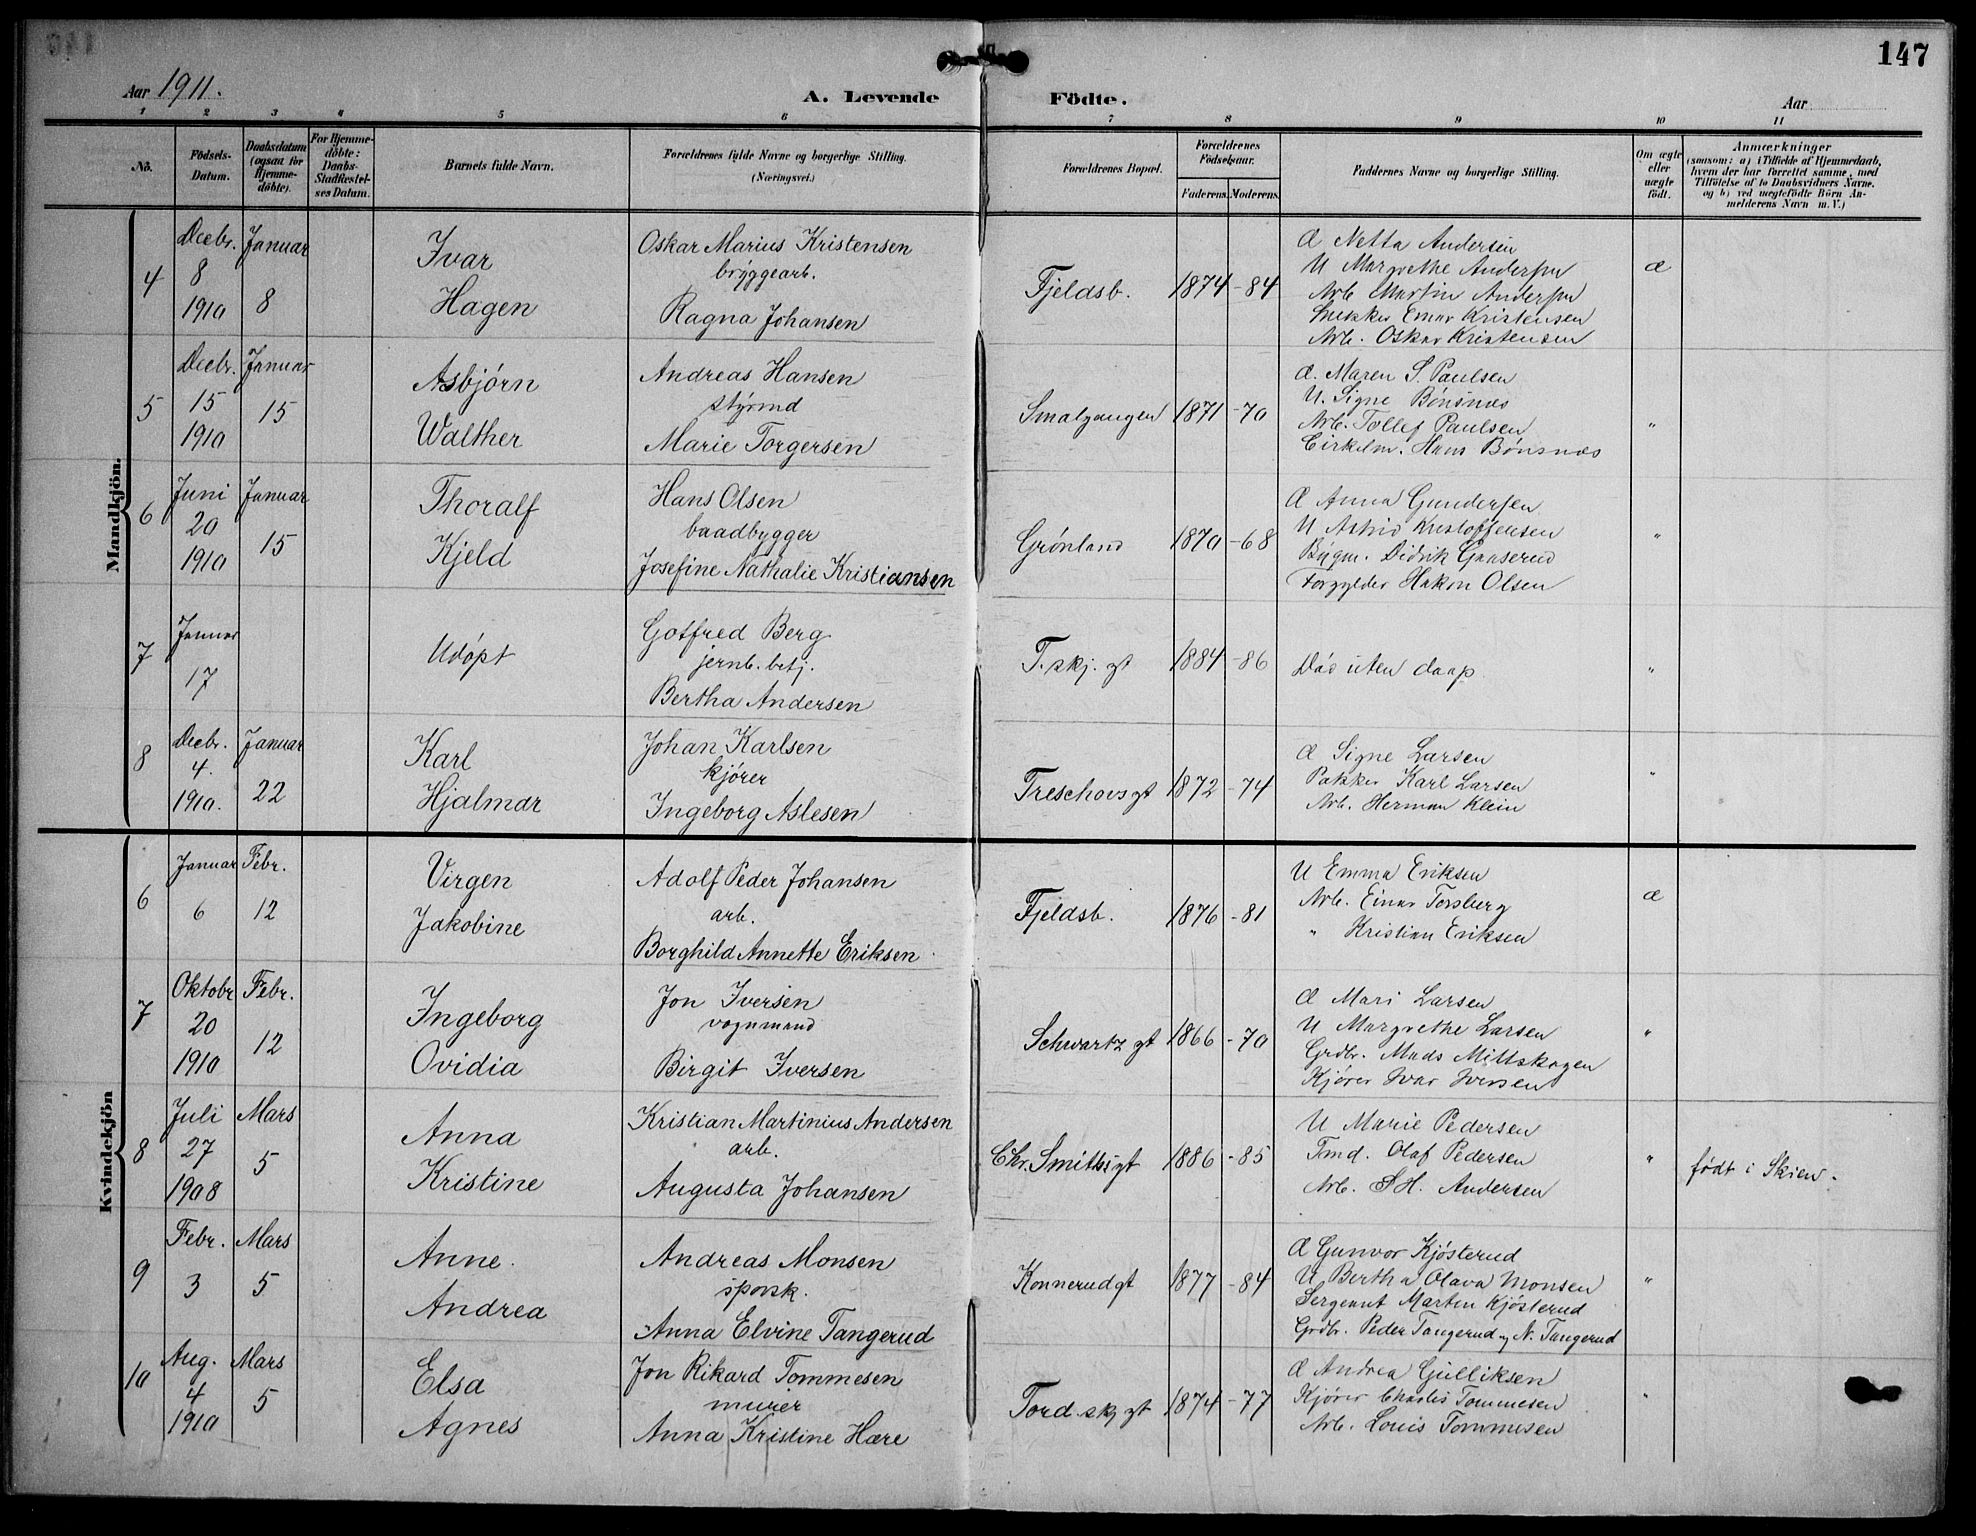 147
Aar 1911.
A. Levende Födte.
Aar
1 2 3 4 5 6 7 8 9 10 11
No.
Födsels-Datum.
Daabsdatum (ogsaa for Hjemme-döbte).
For Hjemme-döbte: Daabs-Stadfæstel-ses Datum.
Barnets fulde Navn.
Forældrenes fulde Navne og borgerlige Stilling. (Næringsvei.)
Forældrenes Bopæl.
Forældrenes Födselsaar.
Faderens. Moderens.
Faddernes Navne og borgerlige Stilling.
Om ægte eller uægte födt.
Anmærkninger
(saasom: a) i Tilfælde af Hjemmedaab,
hvem der har forrettet samme, med
Tilföielse af to Daabsvidners Navne.
og b) ved uægtefödte Börn An-
melderens Navn m. V.)
Mandkjön.
4
Decbr. 8 1910
Januar 8
Ivar
Hagen
Oskar Marius Kristensen
bryggearb.
Ragna Johansen
Fjeldsb.
1874 - 84
Æ Netta Andersen
U Margrethe Andersen
Arb. Martin Andersen
Snekker Einar Kristensen
Arb. Oskar Kristensen
æ
5
Decbr. 15 1910
Januar 15
Asbjørn
Walther
Andreas Hansen
styrmd
Marie Torgersen
Smalgangen
1871 - 70
Æ. Maren S. Paulsen
U. Signe Bönsnæs
Arb. Tollef Paulsen
Cirkelm. Hans Bönsnæs
"
6
Juni 20 1910
Januar 15
Thoralf
Kjeld
Hans Olsen
baadbygger
Josefine Nathalie Kristiansen
Grönland
1870 - 68
Æ Anna Gundersen
U Astrid Kristoffersen
Bygm. Didrik Gaaserud
Forgylder Hakon Olsen
"
7
Januar 17
Udöpt
Gotfred Berg
jernb. betj.
Bertha Andersen
T. skj. gt
1884 - 86
Död uten daap
"
8
Decbr. 4. 1910.
Januar 22
Karl
Hjalmar
Johan Karlsen
kjörer
Ingeborg Aslesen
Treschovsgt
1872 - 74
Æ Signe Larsen
Pakker Karl Larsen
Arb. Herman Klein
"
Kvindekjön
6
Januar 6
Febr. 12
Virgen
Jakobine
Adolf Peder Johansen
arb.
Borghild Annette Eriksen
Fjeldsb.
1876 - 81
U Emma Eriksen
Arb. Einar Torsberg
" Kristian Eriksen
æ
7
Oktobr 20 1910
Febr. 12
Ingeborg
Ovidia
Jon Iversen
vognmand
Birgit Iversen
Schwartz gt
1866 - 70
Æ Mari Larsen
U Margrethe Larsen
Grdbr. Mads Mittskogen
Kjörer Ivar Iversen
"
8
Juli 27 1908
Mars 5
Anna
Kristine
Kristian Martinius Andersen
arb.
Augusta Johansen
Chr. Smithsgt
1886 - 85
U Marie Pedersen
Tmd. Olaf Pedersen
Arb. S H. Andersen
"
födt i Skien.
9
Febr. 3
Mars 5
Anne
Andrea
Andreas Monsen
sporsk.
Anna Elvine Tangerud
Konnerudgt
1877 - 84
Æ Gunvor Kjösterud
U Bertha Olava Monsen
Sergeant Martin Kjösterud
Grdbr. Peder Tangerud og N. Tangerud
"
10
Aug. 4 1910
Mars 5
Elsa
Agnes
Jon Rikard Tommesen
murer
Anna Kristine Hære
Tord. skj gt
1874 - 77
Æ Andrea Gulliksen
Kjörer Charles Tommesen
Arb. Louis Tommesen
"